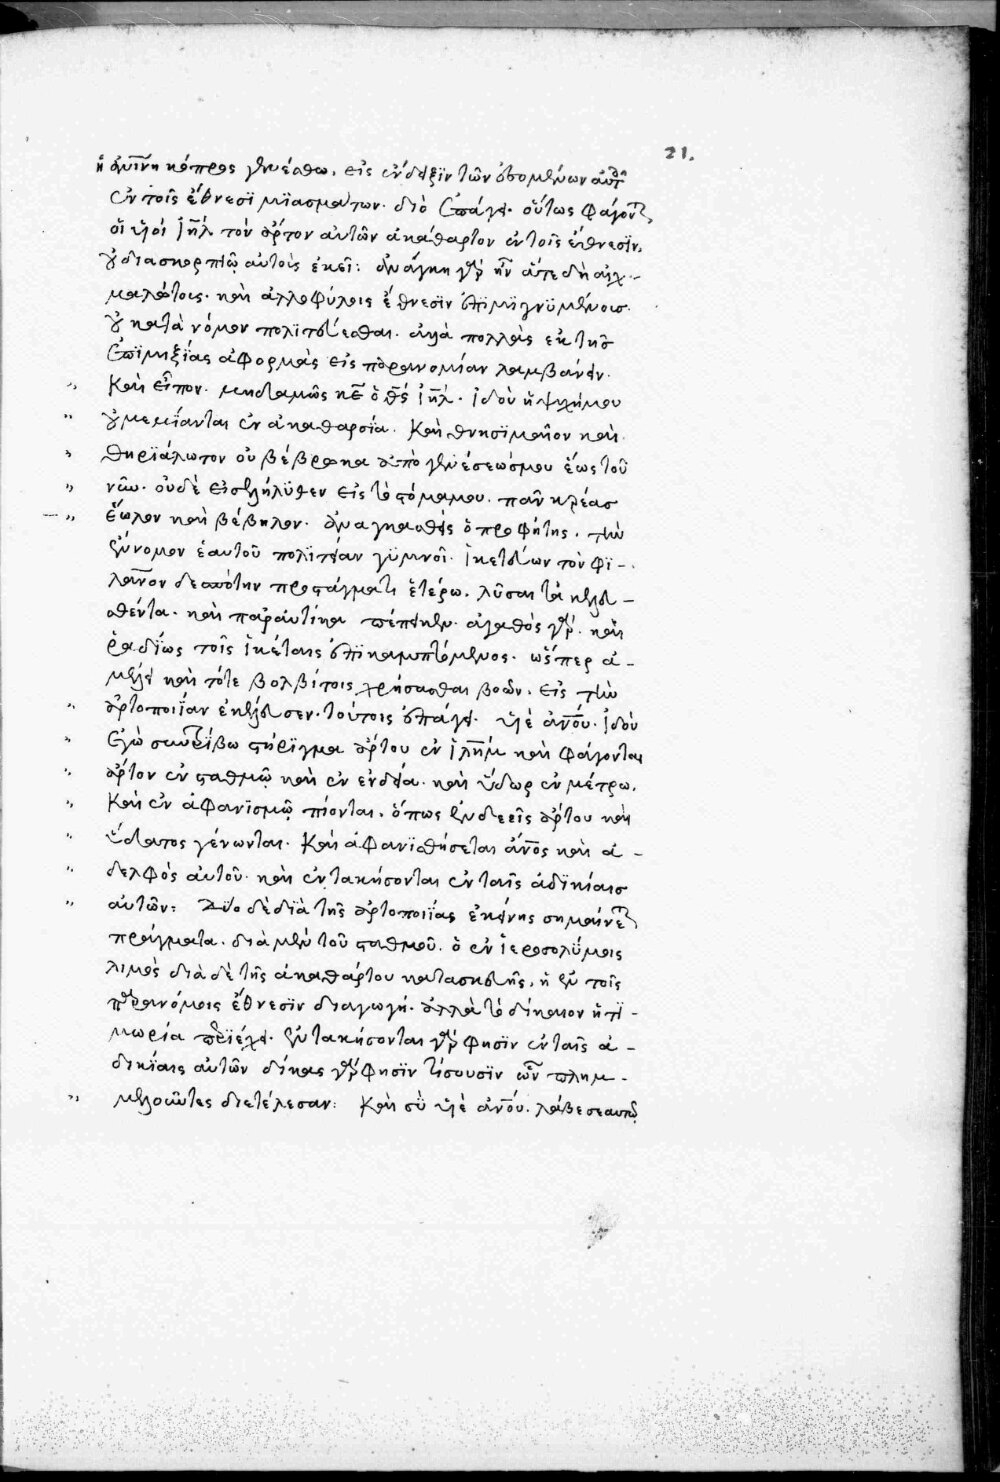 21.
ἡ ἀνίνη κόπρος γενέσθω. εἰς ἔνδειξιν τῶν ἐσομένων αὐτ
ἐν τοῖς ἔθνεσι μιασμάτων. διὸ ἐπάγει. οὕτως φάγονται
οἱ υἱοὶ ἰηλ τὸν ἄρτον αὐτῶν ἀκάθαρτον ἐν τοῖς ἔθνεσιν,
οὗ διασκορπιῶ αὐτοὺς ἐκεῖ: ἀνάγκη γὰρ ἦν ἅτε δὴ αἰχ-
μαλώτοις. καὶ ἀλλοφύλοις ἔθνεσιν ἐπιμιγνυμένοις.
οὐ κατὰ νόμον πολιτεύεσθαι. ἀλλὰ πολλὰς ἐκ τῆς
ἐπιμιξίας ἀφορμὰς εἰς παρανομίαν λαμβάνειν.
" Καὶ εἶπον. μηδαμῶς κε ὁ θς ἰηλ. ἰδοὺ ἡ ψυχή μου
" οὐ μεμίανται ἐν ἀκαθαρσία. Καὶ θνησιμαῖον καὶ
" θηριάλωτον οὐ βέβρωκα ἀπὸ γενέσεώς μου ἕως τοῦ
" νῦν. οὐδὲ εἰσελήλυθεν εἰς τὸ στόμα μου. πᾶν κρέας
" ἕωλον καὶ βέβηλον. ἀναγκασθεὶς ὁ προφήτης. τὴν
ἔννομον ἑαυτοῦ πολιτείαν γυμνοῖ. ἱκετεύων τὸν φι-
λανον δεσπότην προστάγματι ἑτέρω. λῦσαι τὰ κελευ-
σθέντα. καὶ παραυτίκα πέπεικεν. ἀγαθὸς γὰρ. καὶ
ῥαδίως τοῖς ἱκέταις ἐπικαμπτόμενος. ὥσπερ ἀ-
μέλει καὶ τότε βολβίτοις χρήσασθαι βοῶν. εἰς τὴν
" ἀρτοποιΐαν ἐκέλευσεν. τούτοις ἐπάγει. υἱὲ ἀνου. ἰδοὺ
" ἐγὼ συντρίβω στήριγμα ἄρτου ἐν ἰλημ καὶ φάγονται
" ἄρτον ἐν σταθμῶ καὶ ἐν ἐνδεία. καὶ ὕδωρ ἐν μέτρω.
" Καὶ ἐν ἀφανισμῶ πίονται. ὅπως ἐνδεεῖς ἄρτου καὶ
" ὕδατος γένωνται. Καὶ ἀφανισθήσεται ἄνος καὶ ἀ-
" δελφὸς αὐτοῦ. καὶ ἐντακήσονται ἐν ταῖς ἀδικίαις
" αὐτῶν: Δύο δὲ διὰ τῆς ἀρτοποιΐας ἐκείνης σημαίνεται
πράγματα. διὰ μὲν τοῦ σταθμοῦ. ὁ ἐν ἱεροσολύμοις
λιμὸς διὰ δὲ τῆς ἀκαθάρτου κατασκευῆς, ἡ ἐν τοῖς
παρανόμοις ἔθνεσιν διαγωγή. ἀλλὰ τὸ δίκαιον ἡ τι-
μωρία περιέχει. ἐντακήσονται γὰρ φησὶν ἐν ταῖς ἀ-
δικίαις αὐτῶν δίκας γὰρ φησὶν τίσουσιν ὧν πλημ-
" μελοῦντες διετέλεσαν: Καὶ σὺ υἱὲ ἀνου. λάβε σεαυτῶ